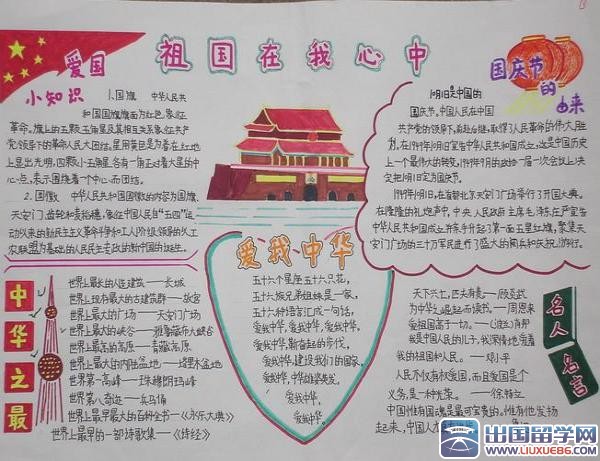 祖国在我心中
爱国
小知识
1.国旗 中华人民共
和国国旗旗面为红色,象征
革命。旗上的五颗五角星及其相互关系象征共产
党领导下的革命人民大团结。星用黄色是为着在红地
上显出光明,四颗小五角星各有一角正对着大星的中
心点,表示围绕着一个中心而团结。
2.国徽 中华人民共和国国徽的内容为国旗
天安门、齿轮和麦稻穗,象征中国人民自“五四”运
动以来的新民主主义革命斗争和工人阶级领导的以工
农联盟为基础的人民民主专政的新中国的诞生。
国庆节
的
由来
10月1日是中国的
国庆节。中国人民在中国
共产党的领导下,前赴后继,取得了人民革命的伟大胜
利。在1949年10月1日宣告中华人民共和国成立,这是中国历史
上一个最伟大的转变。1949年9月的政协一届一次会议上决
定把10月1日定为国庆节。
1949年10月1日,在首都北京天安门广场举行了开国大典。
在隆隆的礼炮声中,中央人民政府主席毛泽东庄严宣告
中华人民共和国成立并亲手升起了第一面五星红旗。聚集天
安门广场的三十万军民进行了盛大的阅兵和庆祝游行。
中华之最
世界上最长的人造建筑——长城
世界上现存最大的古建筑群——故宫
世界上最大的广场——天安门广场
世界上最大的峡谷——雅鲁藏布大峡谷
世界上最高的高原——青藏高原
世界上最大的内陆盆地——塔里木盆地
世界第一高峰——珠穆朗玛峰
世界第八奇迹——兵马俑
世界上最早最大的百科全书——《永乐大典》
世界上最早的一部诗歌集——《诗经》
爱我中华
五十六个星座五十六只花,
五十六族兄弟姐妹是一家,
五十六种语言汇成一句话,
爱我中华,爱我中华,爱我中华,
爱我中华,奋起的步伐,
爱我中华,建设我们的国家,
爱我中华,中华雄姿英发,
爱我中华,
爱我中华。
名人名言
天下兴亡,匹夫有责——顾炎武
为中华之崛起而读书——周恩来
爱祖国高于一切。——肖邦
是中国人民的儿子,我深情地爱着
我的祖国和人民。——邓小平
人民不仅有权爱国,而且爱国是个
义务,是一种光荣。——徐特立
中国惟有国魂是最可宝贵的,惟有他发扬
起来,中国人
出国留学网
WWW.LIUXUE86.COM